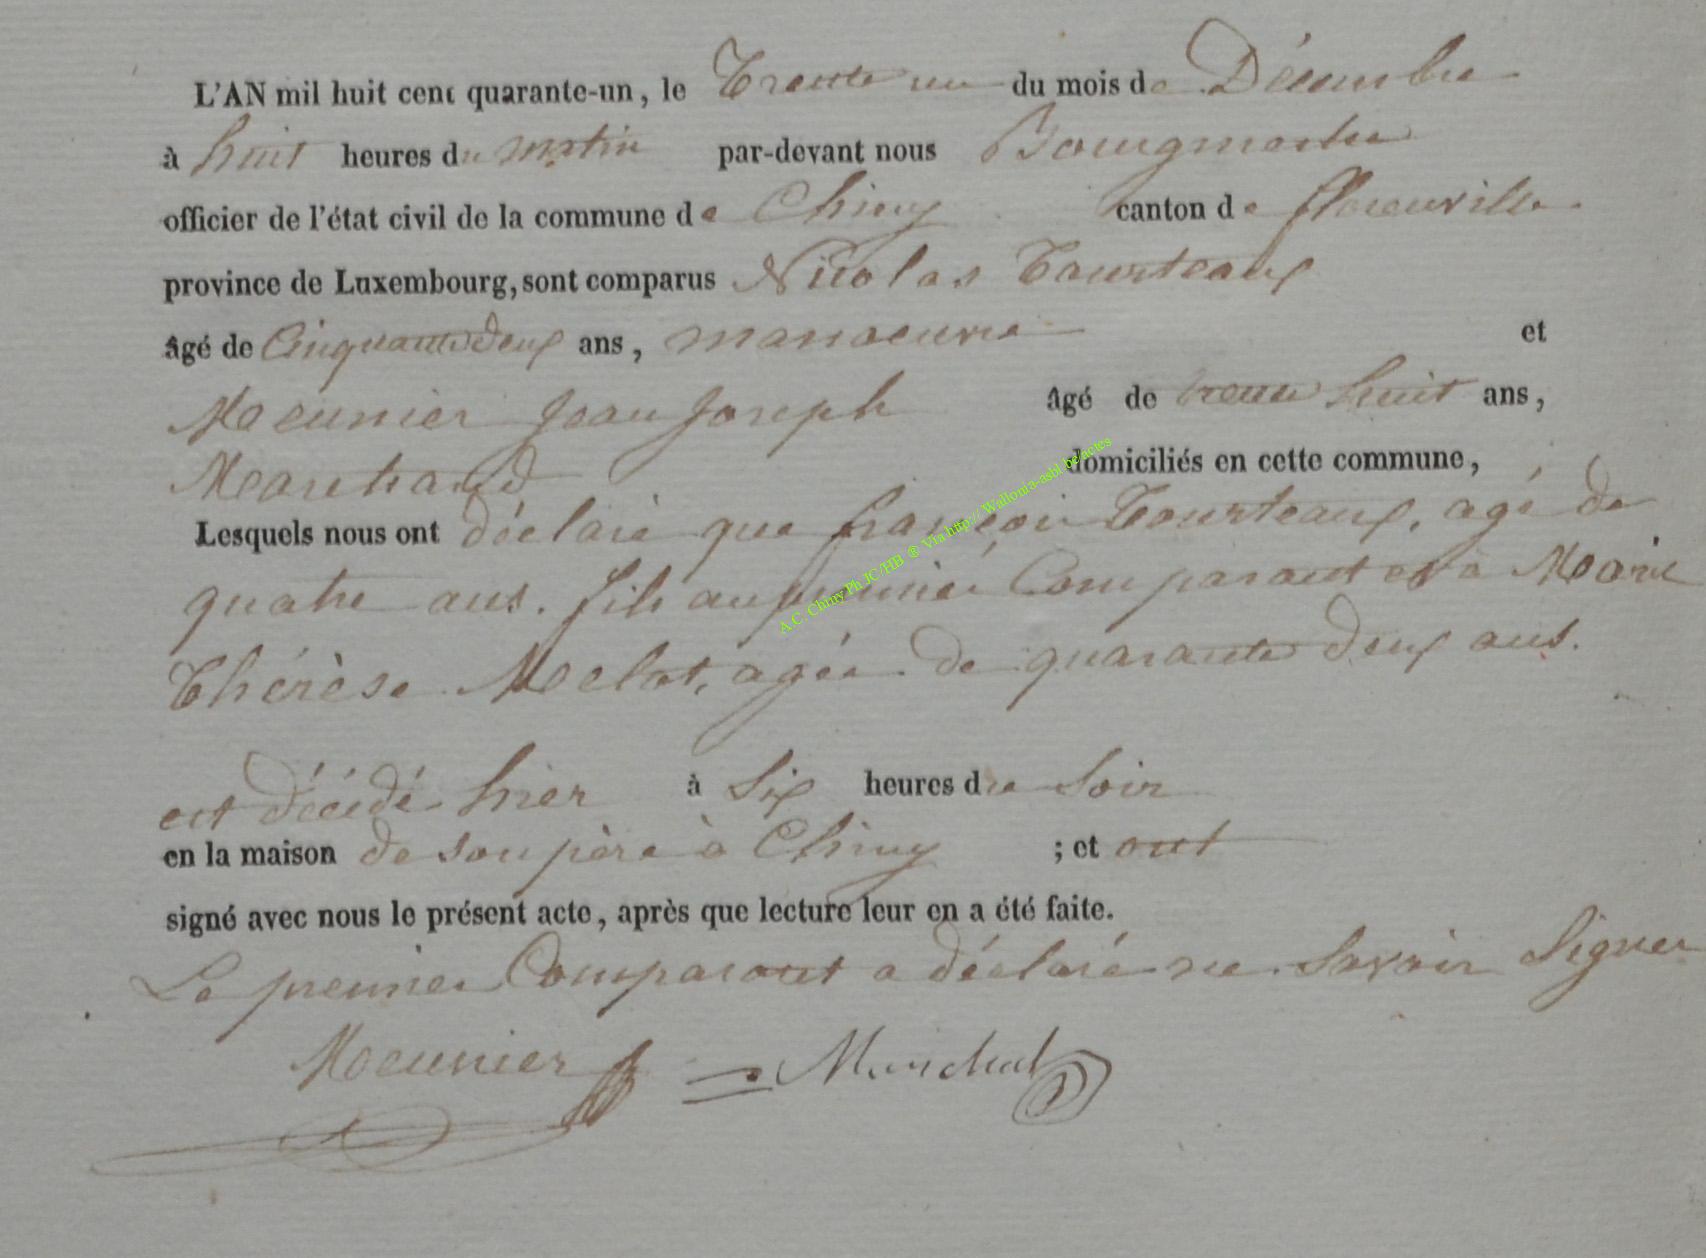 L'AN mil huit cent quarante-un, le Trente un du mois de Décembre
à huit heures du matin par-devant nous Bourgmestre
officier de l'état civil de la commune de Chiny canton de florenville
province de Luxembourg, sont comparus Nicolas Tourteaux
âgé de Cinquante deux ans, manoeuvre et
Meunier Jean Joseph âgé de trente huit ans,
Marchand domiciliés en cette commune,
Lesquels nous ont déclaré que françois Tourteaux, agé de
quatre ans. fils au premier Comparant et à Marie
Thérèse Melot, agée de quarante deux ans.
est décédé hier à Six heures du Soir
en la maison de son père à Chiny ; et ont
signé avec nous le présent acte, après que lecture leur en a été faite.
Le premier Comparant a déclaré ne Savoir Signer
Meunier
A.C. Chiny Ph JC/HB ® Via http:// Wallonia-asbl.be/actes